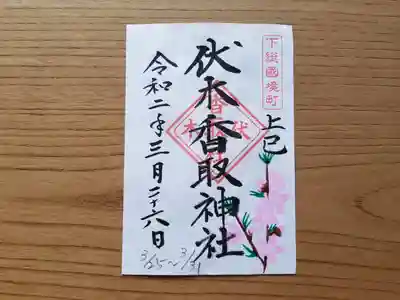 下総國境町
上巳
伏木香取神社
令和二年三月二十六日
3/25~3/31